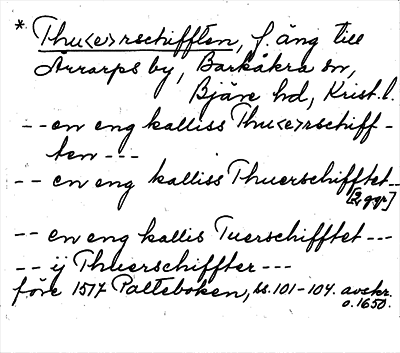 * Thu<e>rschifften, f. äng till
Arrarps by, Barkåkra sn,
Bjäre hd, Krist. l.
-- en eng kalliss Thu<e>rschiff-
ten ---
-- en eng kalliss Thuerschifftet --
[2 ggr]
-- en eng kallis Tuerschifftet ---
-- ij Thuerschiffter ---
före 1577 Palteboken, ss. 101-104. avskr.
o. 1650.